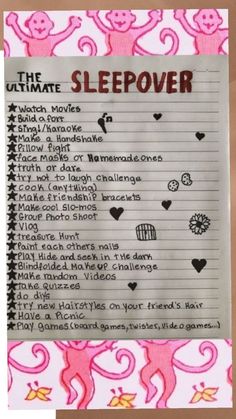 THE ULTIMATE SLEEPOVER
★ Watch Movies
★ Build a fort
★ Sing/Karaoke
★ Make a Handshake
★ Pillow fight
★ face Masks or Homemade ones
★ truth or dare
★ try not to laugh challenge
★ cook (anything)
★ Make friendship bracelets
★ Make cool slo-mos
★ Group Photo Shoot
★ Vlog
★ treasure Hunt
★ Paint each others nails
★ Play Hide and seek in the dark
★ Blindfolded Makeup challenge
★ Make random Videos
★ take quizzes
★ do diys
★ try new Hairstyles on your friend's Hair
★ Have a Picnic
★ Play games (board games, twister, Video games...)